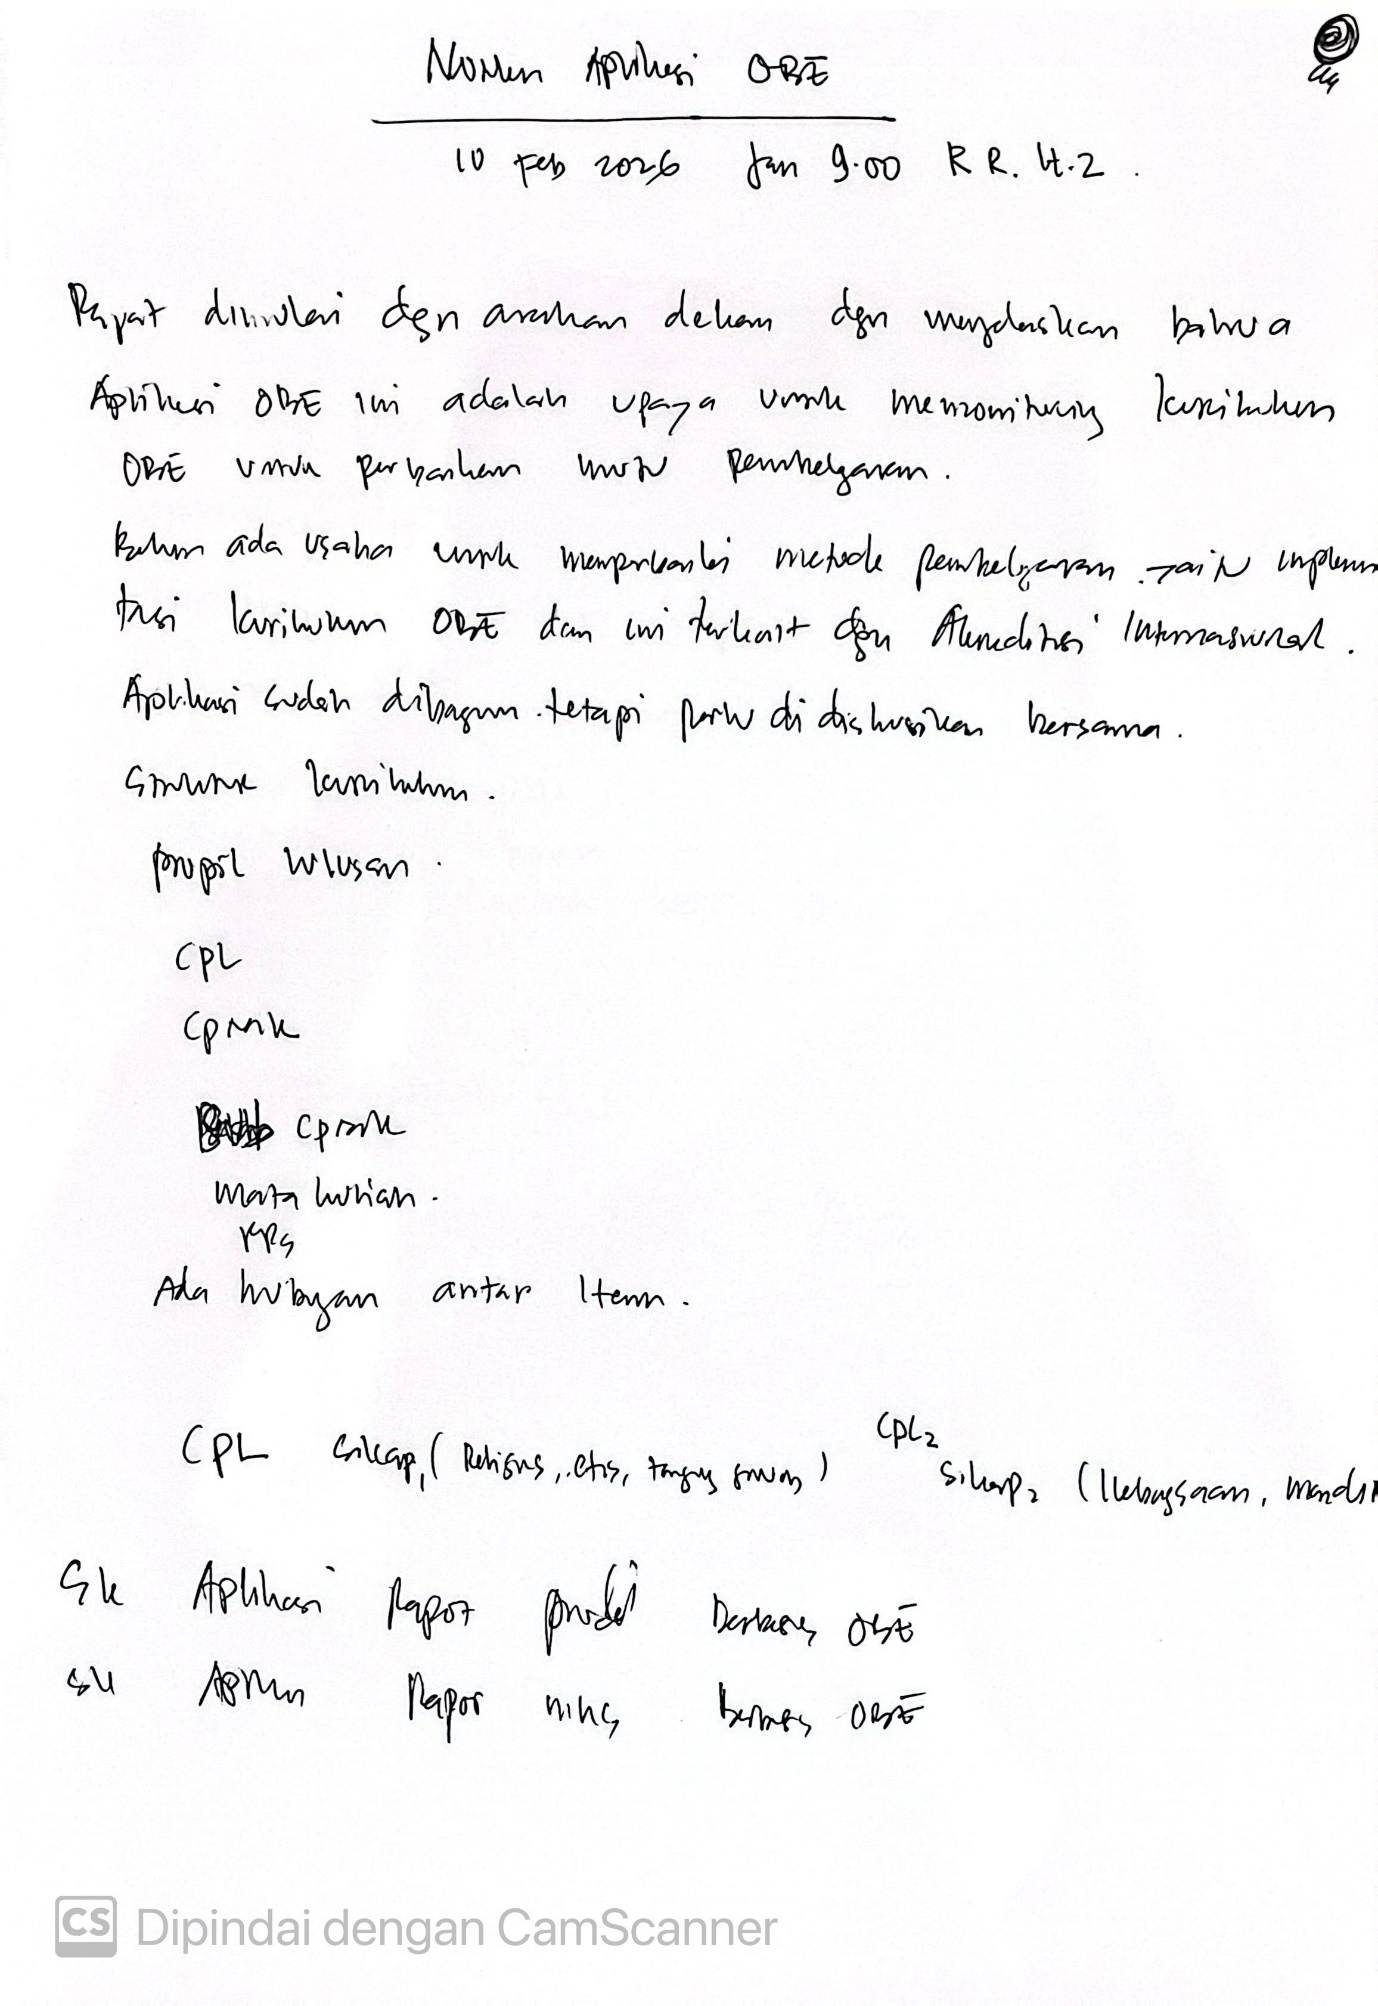 Notulen Aplikasi OBE
10 Feb 2026 Jam 9.00 R R. H.2.
Rapat dimulai dgn arahan dekan dgn menjelaskan bahwa
Aplikasi OBE ini adalah upaya untuk memonitoring kurikulum
OBE untuk perbaikan mutu pembelajaran.
Belum ada usaha untuk memperbaiki metode pembelajaran yaitu implemen
tasi kurikulum OBE dan ini terkait dgn Akreditasi Internasional.
Aplikasi sudah dibagun tetapi perlu di diskusikan bersama.
Struktur kurikulum.
propil lulusan.
CPL
Cpmk
Cpmk
Mata kuliah.
RPS
Ada hubugan antar Item.
CPL2
CPL Sikap1 (Religius, etis, tangug jawab) Sikap2 (Kebagsaan, mandi
Sk Aplikasi Rapor prodi berbasis OBE
SK Rapor berbasis OBE
CS Dipindai dengan CamScanner